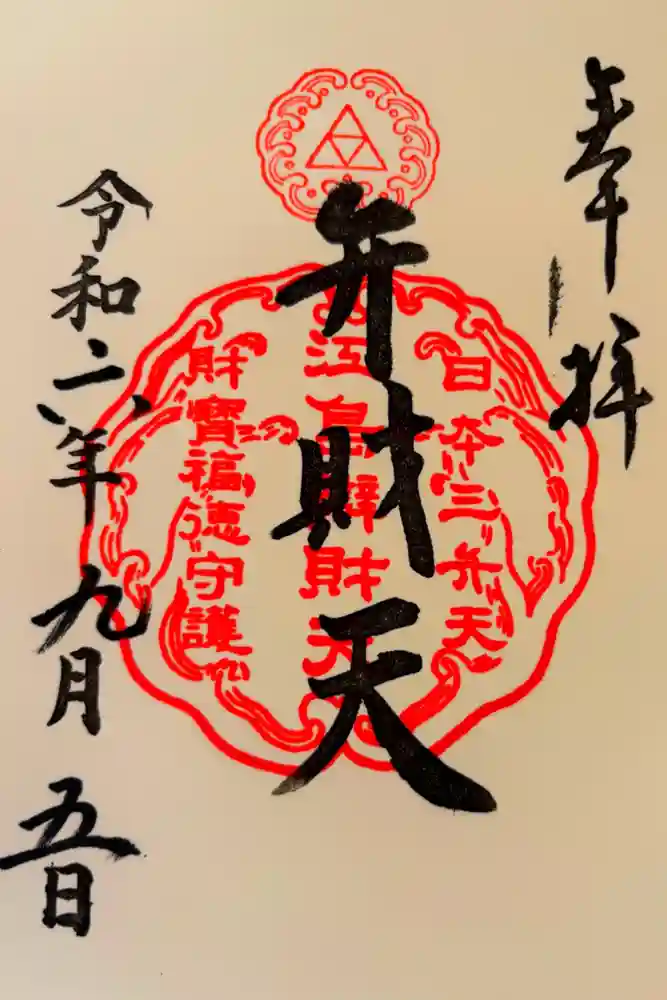 奉拝
弁財天
日本三弁天
江島辯財天
財寶福徳守護
令和二年九月五日